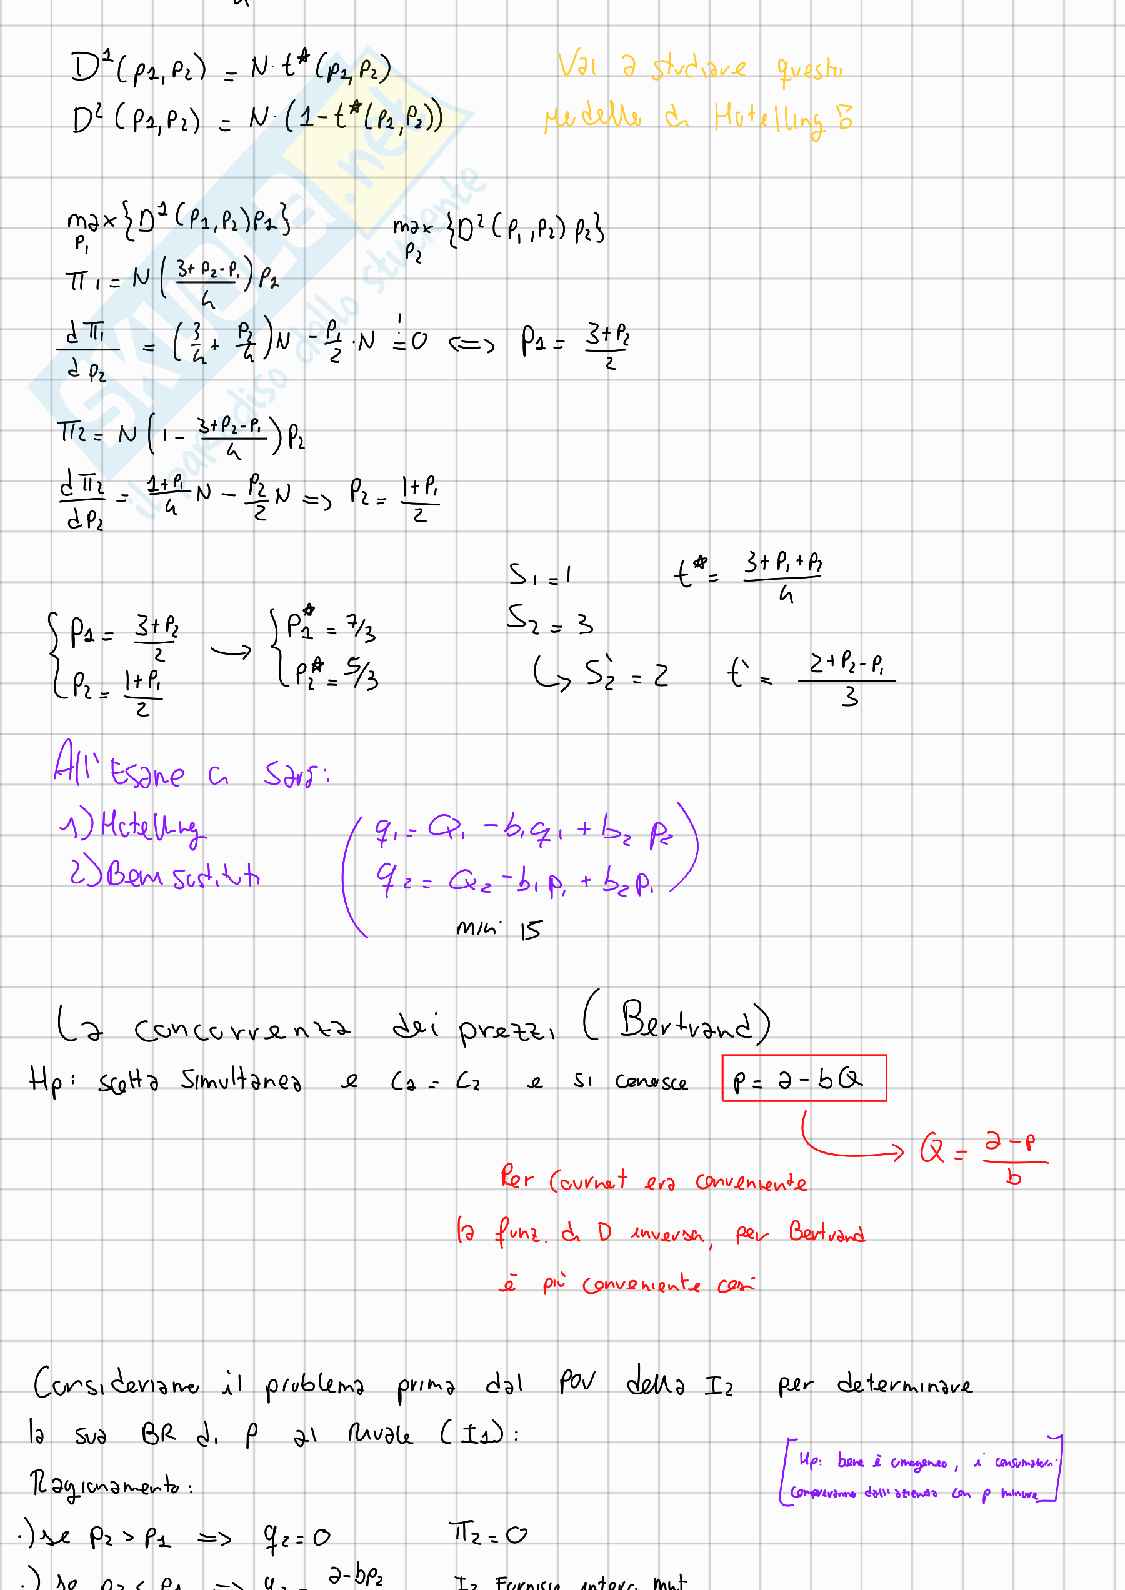 D¹(p1,p2) = N·t*(p1,p2)
D²(p1,p2) = N·(1-t*(p1,p2))
Vai a studiare questi
modello di Hotelling 5
max{D¹(p1,p2)p1}
p1
max {D²(p1,p2)p2}
p2
π1 = N((3+p2-p1)/4)p1
dπ1/dp1 = (3/4 + p2/4)N - p1/2·N != 0 <=> p1 = (3+p2)/2
π2 = N(1 - (3+p2-p1)/4)p2
dπ2/dp2 = (1+p1)/4 N - p2/2 N => p2 = (1+p1)/2
S1 = 1
t* = (3+p1+p2)/4
S2 = 3
↳ S2` = 2
t` = (2+p2-p1)/3
{p1 = (3+p2)/2
p2 = (1+p1)/2
→ {p1* = 7/3
p2* = 5/3
All'Esame ci sarà:
1) Hotelling
2) Beni sostituti
(q1 = Q1 - b1q1 + b2 p2
q2 = Q2 - b1p1 + b2p1)
min 15
La concorrenza dei prezzi (Bertrand)
Hp: scelta simultanea e C1 = C2 e si conosce p = a-bQ
→ Q = (a-p)/b
Per Cournot era conveniente
la funz. di D inversa, per Bertrand
è più conveniente così
Consideriamo il problema prima dal POV della I2 per determinare
la sua BR di p al rivale (I1):
[Hp: bene è omogeneo, i consumatori
compreranno dall'azienda con p minore]
Ragionamento:
.) se p2 > p1 => q2 = 0
π2 = 0
.) se p2 < p1 => q2 = a-bp2
I2 Fornisce intero mkt
SKUOLA.net
il paradiso dello studente